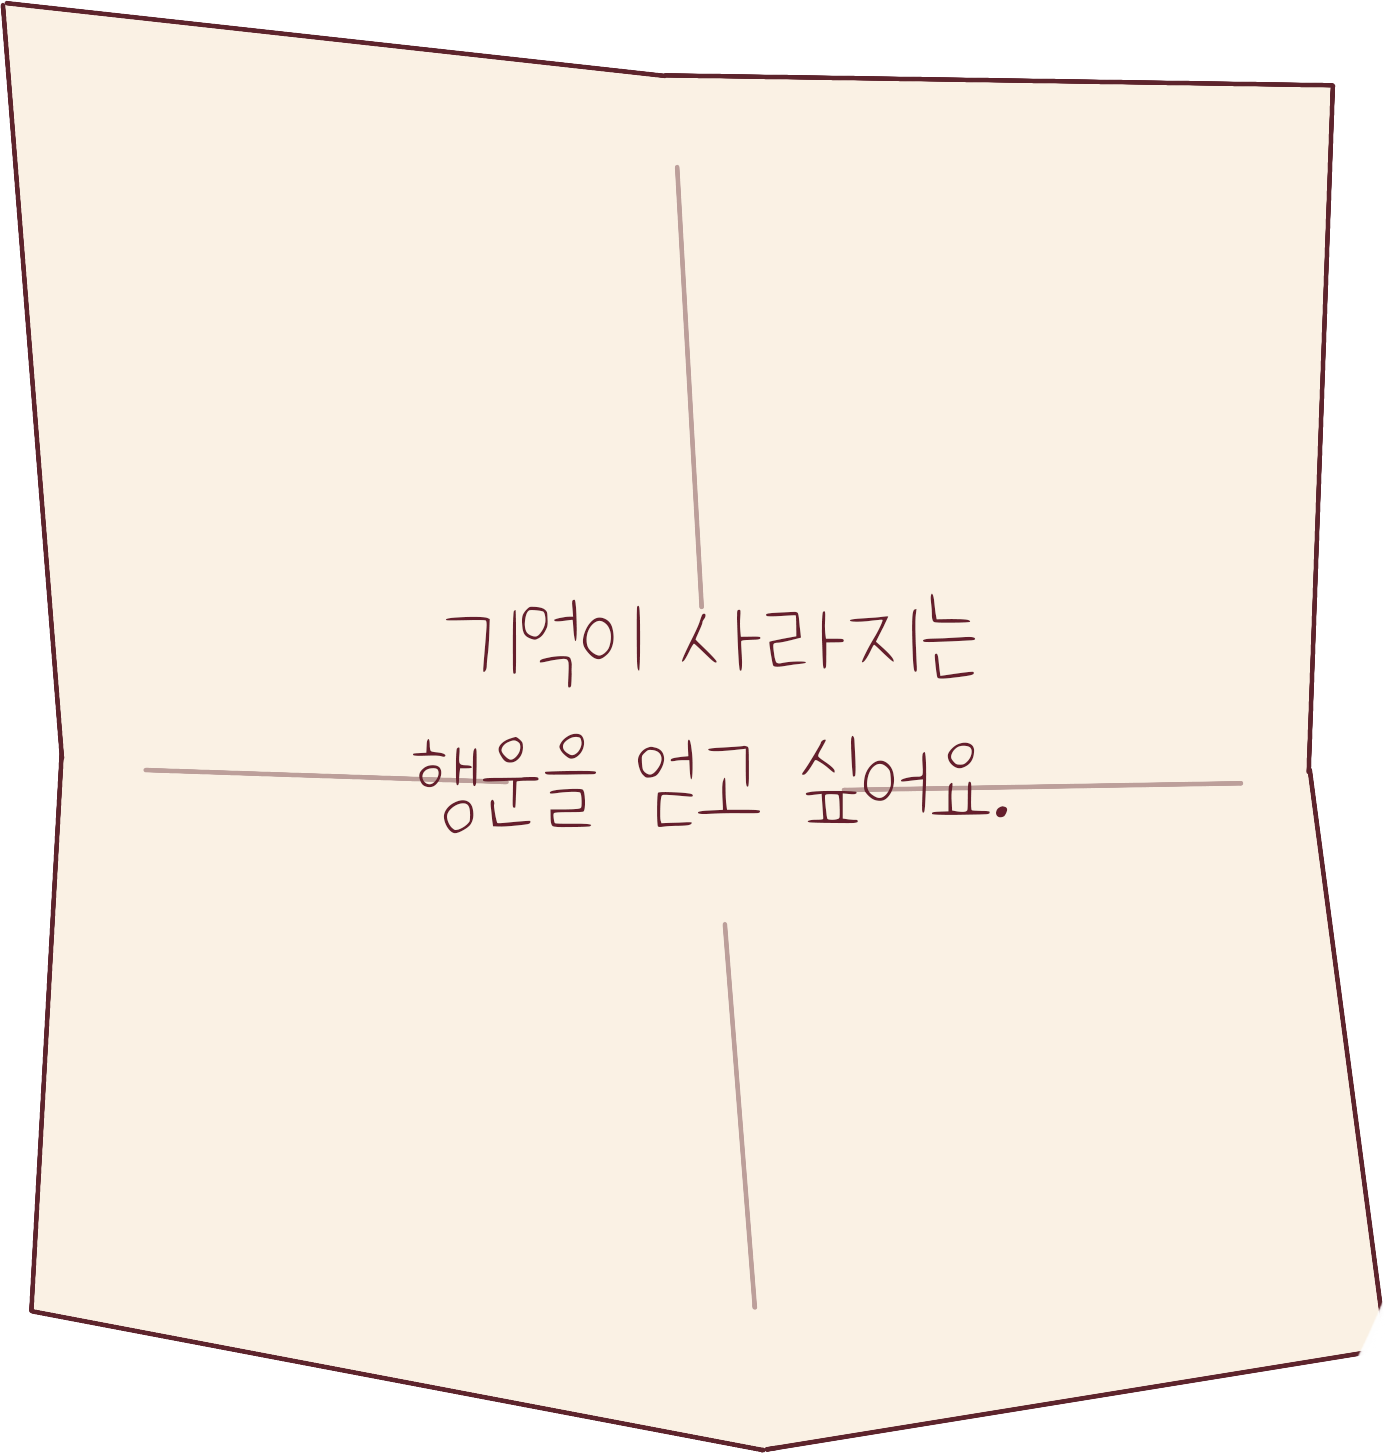 기억이 사라지는
행운을 얻고 싶어요.